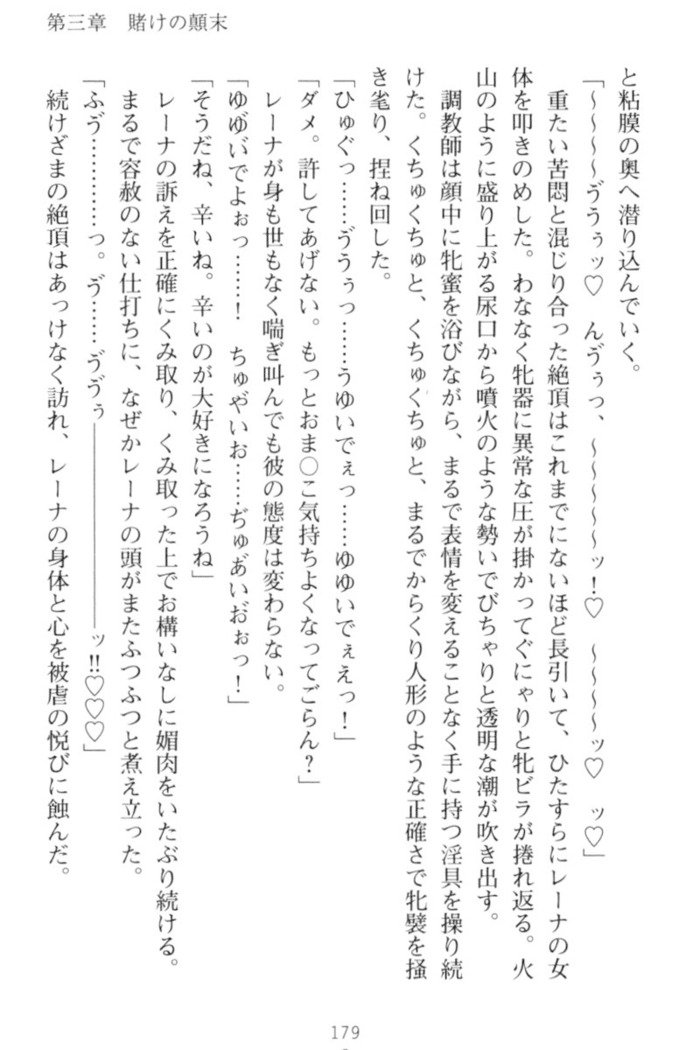 第三章　賭けの顛末
と粘膜の奥へ潜り込んでいく。
「～～～～ゔうぅッ♡　んゔぅっ、～～～～～ッ！♡　～～～～ッ♡　ッ♡」
　重たい苦悶と混じり合った絶頂はこれまでにないほど長引いて、ひたすらにレーナの女
体を叩きのめした。わななく牝器に異常な圧が掛かってぐにゃりと牝ビラが捲れ返る。火
山のように盛り上がる尿口から噴火のような勢いでびちゃりと透明な潮が吹き出す。
　調教師は顔中に牝蜜を浴びながら、まるで表情を変えることなく手に持つ淫具を操り続
けた。くちゅくちゅと、くちゅくちゅと、まるでからくり人形のような正確さで牝襞を掻
き毟り、捏ね回した。
「ひゅぐっ……ゔうぅっ……うゆいでぇっ……ゆゆいでぇえっ！」
「ダメ。許してあげない。もっとおま○こ気持ちよくなってごらん？」
　レーナが身も世もなく喘ぎ叫んでも彼の態度は変わらない。
「ゆゆ゛い゛でよぉっ……！　ちゅや゛いお……ぢゅあ゛いおぉっ！」
「そうだね、辛いね。辛いのが大好きになろうね」
　レーナの訴えを正確にくみ取り、くみ取った上でお構いなしに媚肉をいたぶり続ける。
　まるで容赦のない仕打ちに、なぜかレーナの頭がまたふつふつと煮え立った。
「ふゔ…………っ。ゔ……ゔゔぅ――――――――ッ!!♡♡♡」
　続けざまの絶頂はあっけなく訪れ、レーナの身体と心を被虐の悦びに蝕んだ。
179